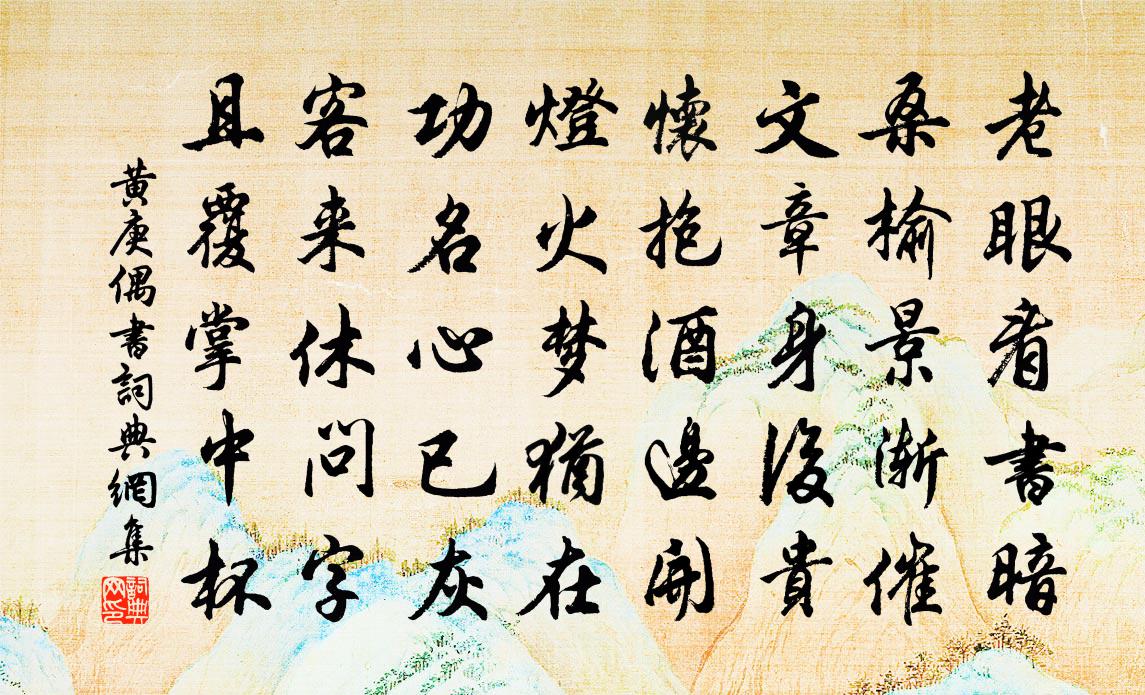 老眼看書暗
桑榆景漸催
文章身後貴
懷抱酒邊開
燈火梦猶在
功名心已灰
客来休问字
且覆掌中杯
黄庚偶書詞典網集
詞典網印